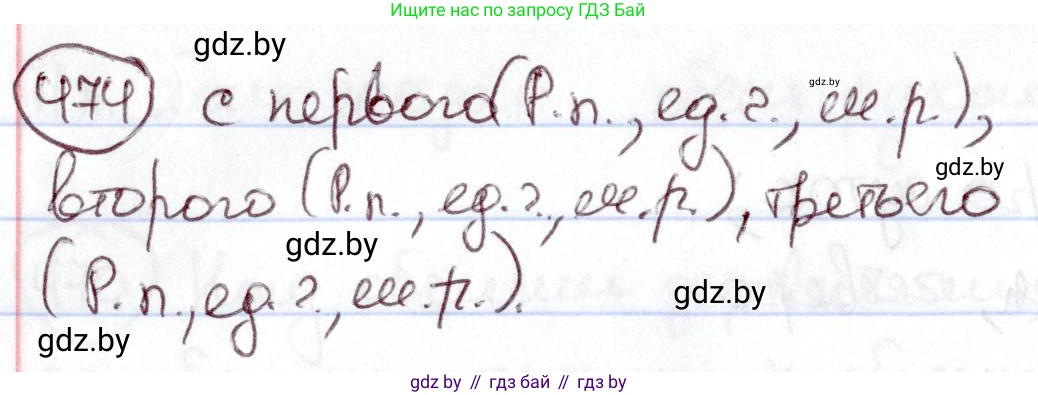 Ищите нас по запросу ГДЗ Бай
gdz.by
gdz.by
474 с первого (Р.п., ед.ч., м.р.),
gdz.by
второго (Р.п., ед.ч., м.р.), третьего
gdz.by
(Р.п., ед.ч., м.р.).
gdz.by
gdz.by
gdz by // гдз бай // гдз by